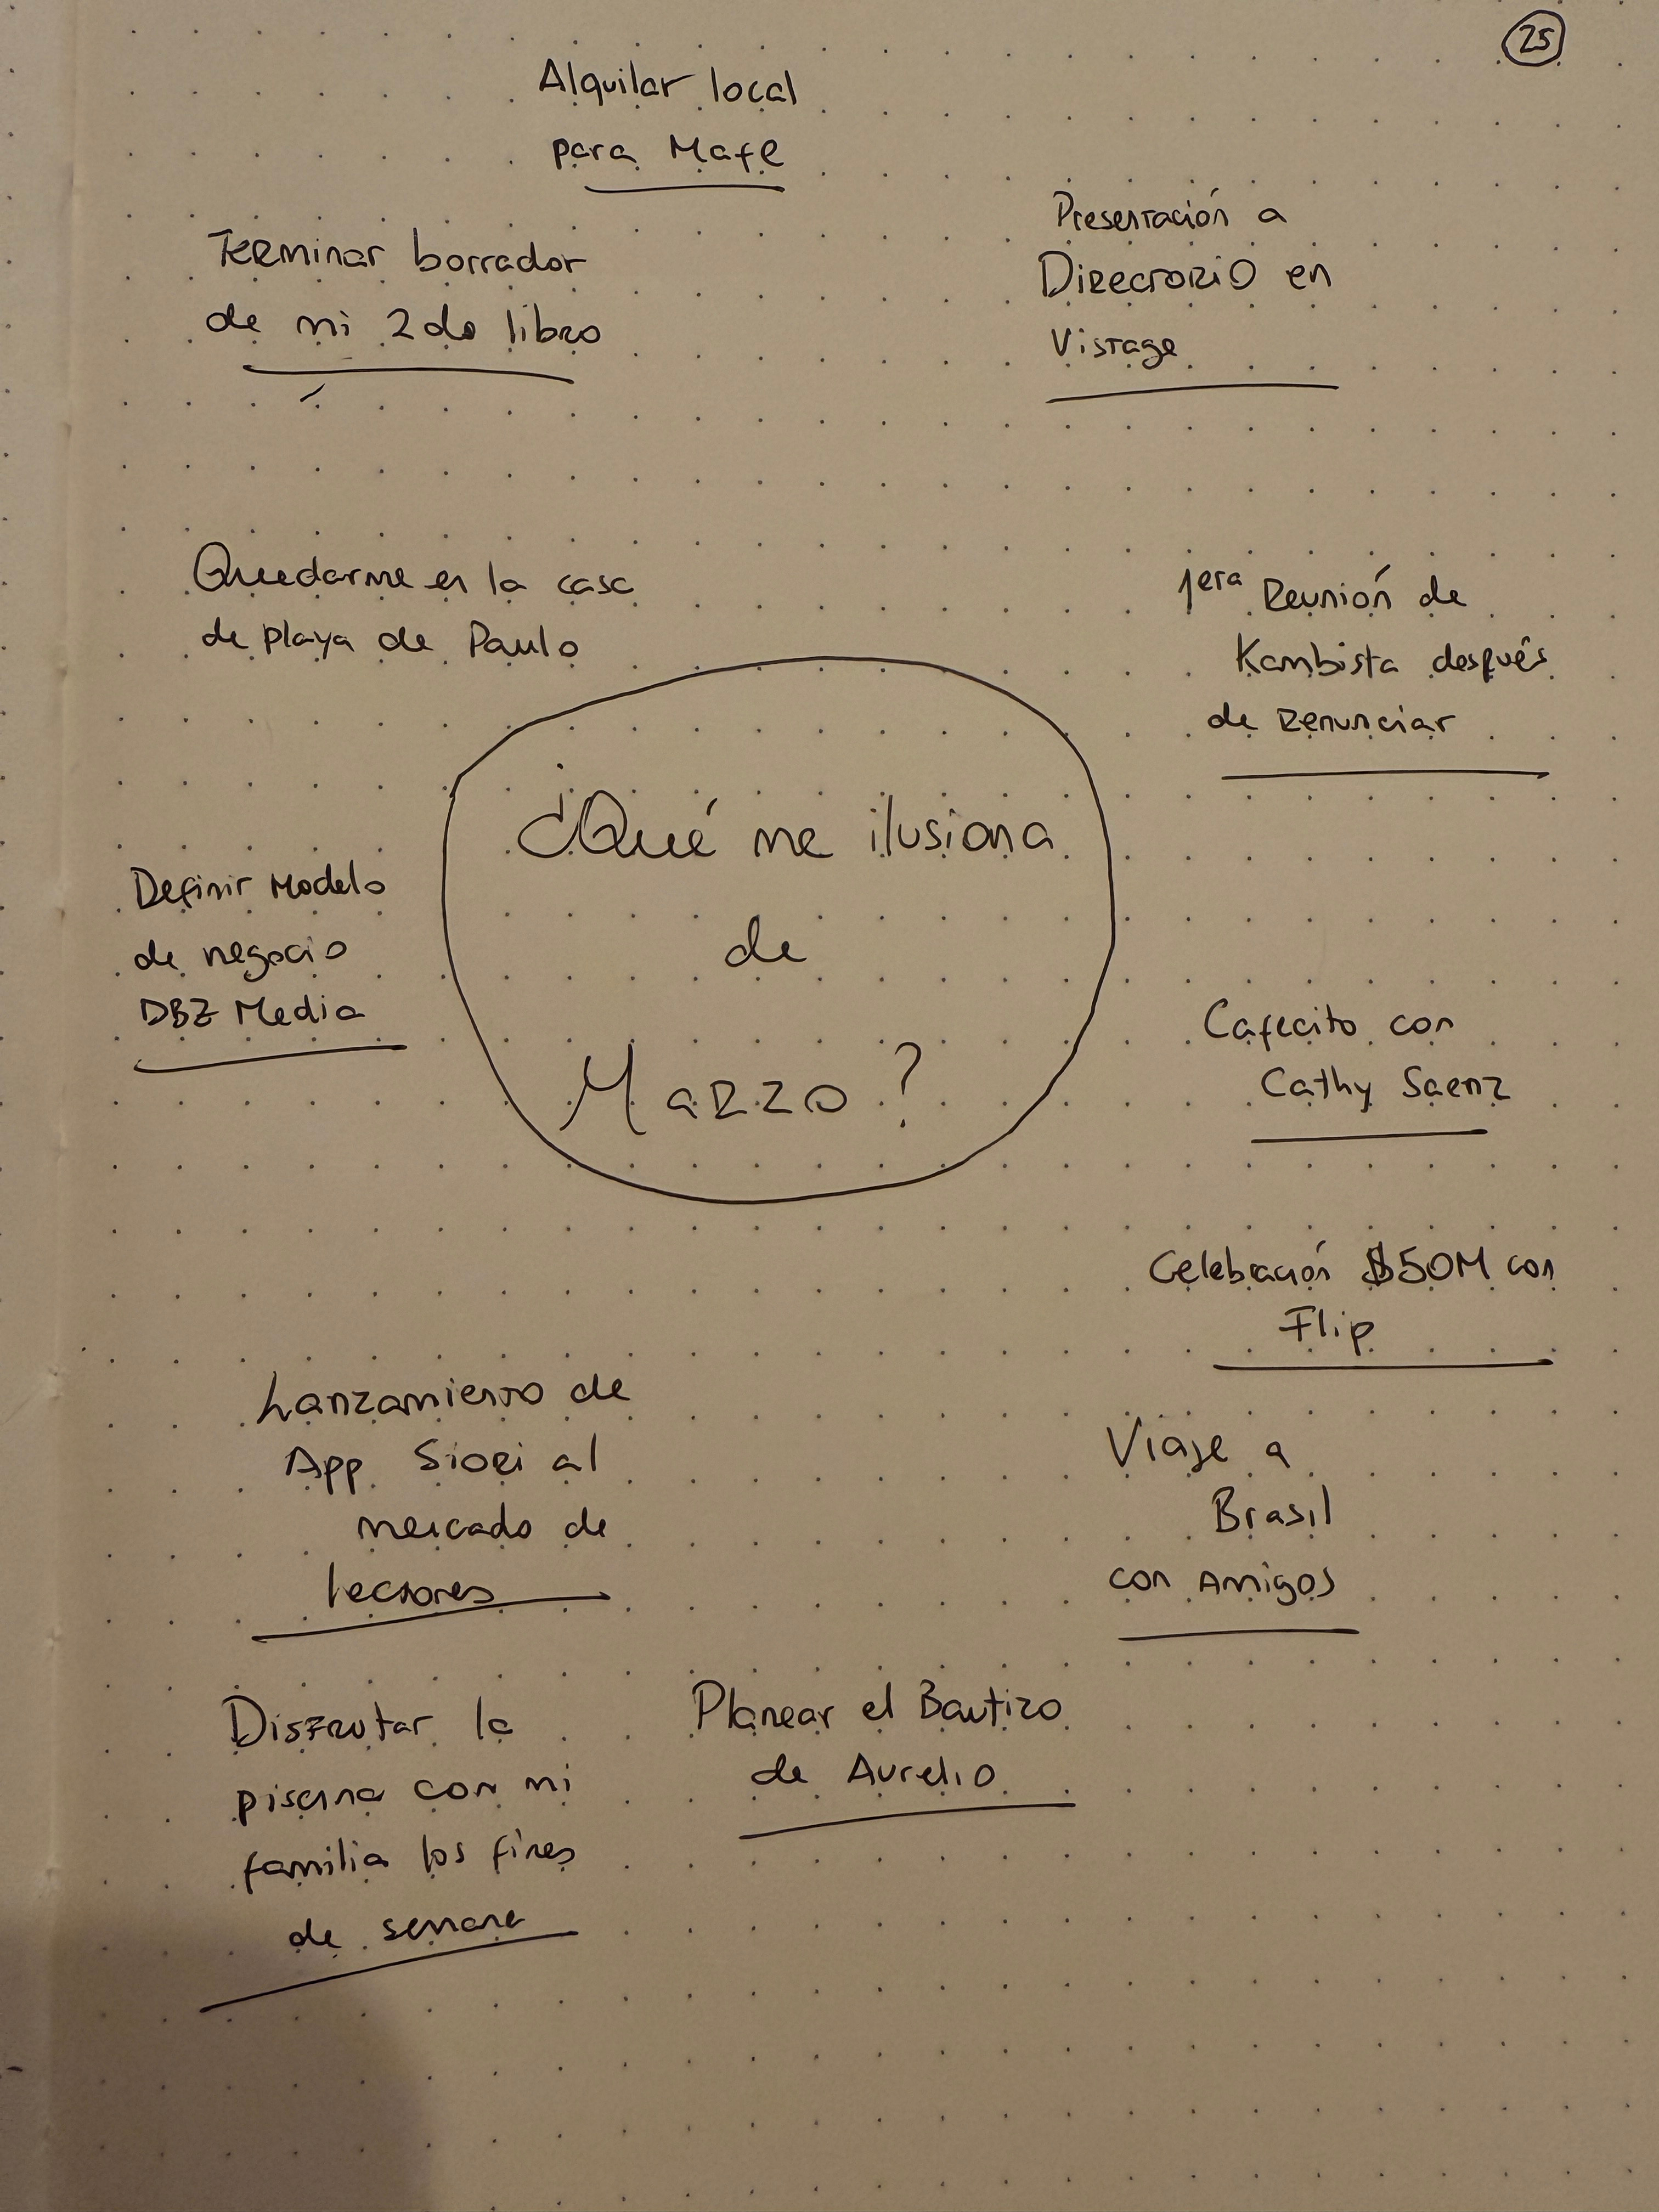 25
Alquilar local
para Mafe
Terminar borrador
de mi 2do libro
Presentación a
Directorio en
Vistage
Quedarme en la casa
de playa de Paulo
1era Reunión de
Kambista después
de renunciar
¿Qué me ilusiona
de
Marzo?
Definir Modelo
de negocio
DBZ Media
Cafecito con
Cathy Saenz
Celebración $50M con
Flip
Lanzamiento de
App Siori al
mercado de
lectores
Viaje a
Brasil
con Amigos
Disfrutar la
piscina con mi
familia los fines
de semana
Planear el Bautizo
de Aurelio